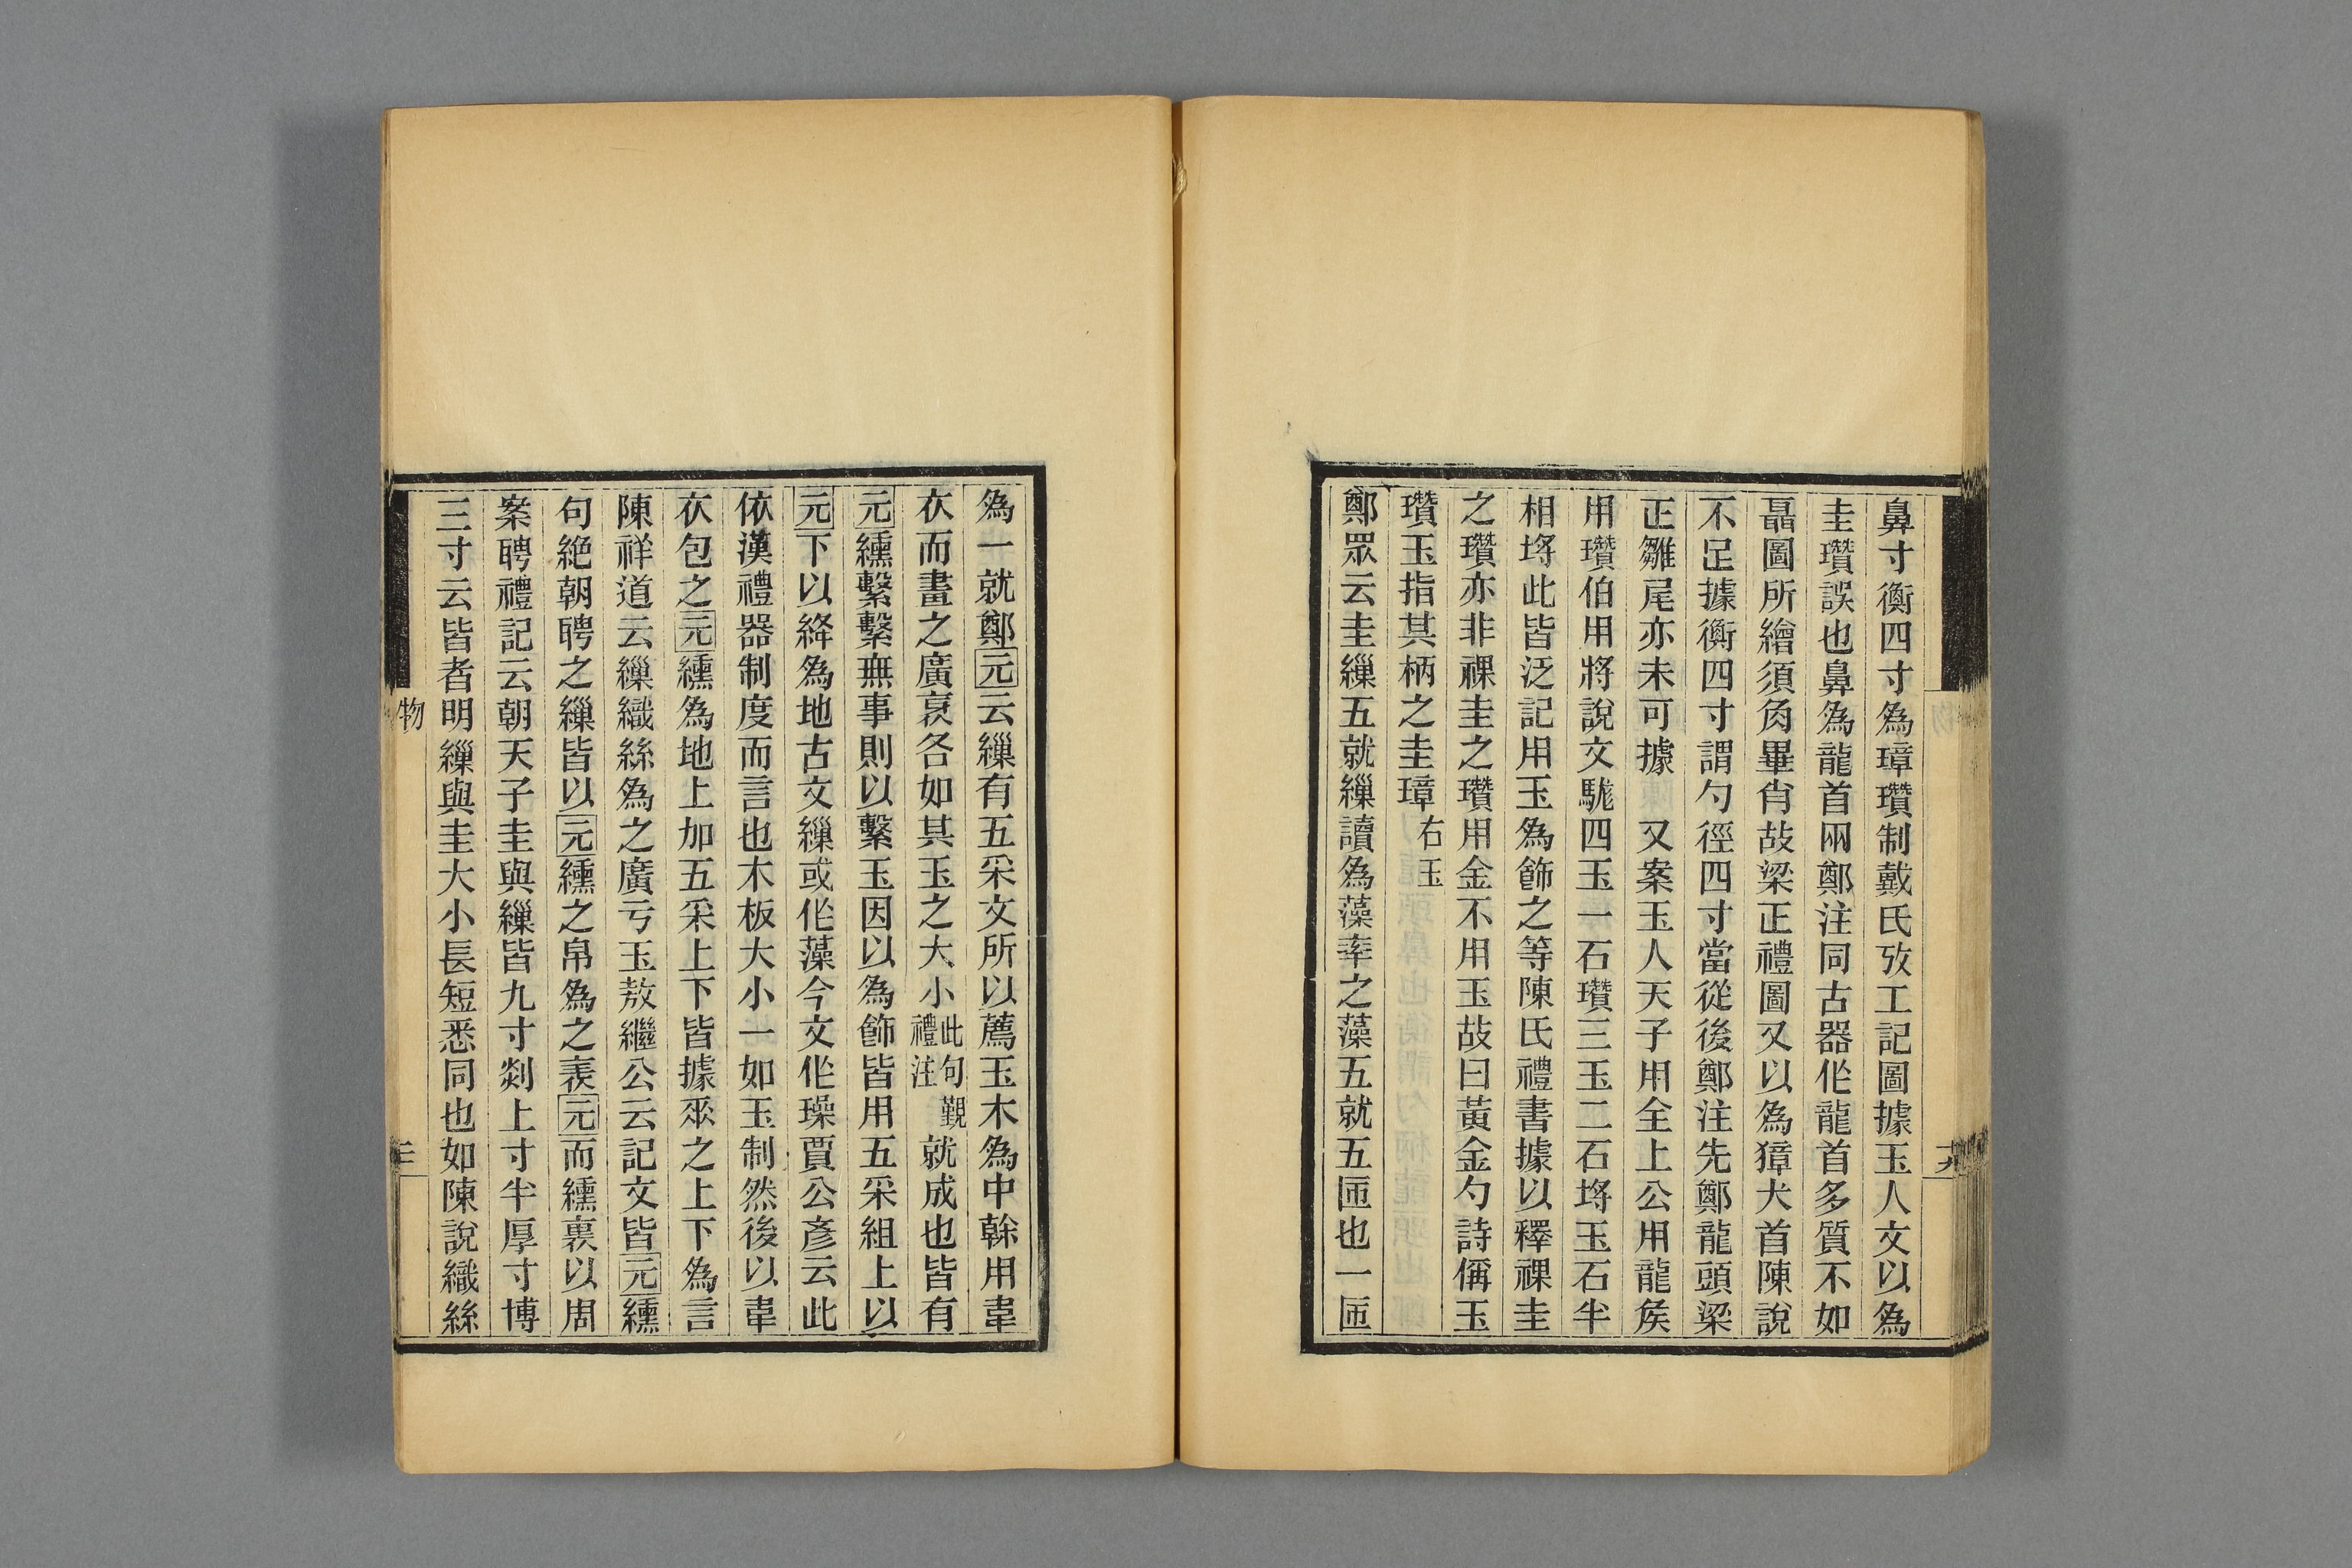 鼻寸衡四寸為璋瓚制戴氏攷工記圖據玉人文以為
圭瓚誤也鼻為龍首兩鄭注同古器作龍首多質不如
聶圖所繪須角畢肖故梁正禮圖又以為獐犬首陳說
不足據衡四寸謂勺徑四寸當從後鄭注先鄭龍頭梁
正雛尾亦未可據　又案玉人天子用全上公用龍矦
用瓚伯用將說文駹四玉一石瓚三玉二石埒玉石半
相埒此皆泛記用玉為飾之等陳氏禮書據以釋祼圭
之瓚亦非祼圭之瓚用金不用玉故曰黃金勺詩偁玉
瓚玉指其柄之圭璋右玉
鄭眾云圭繅五就繅讀為藻率之藻五就五匝也一匝
十九
為一就鄭元云繅有五采文所以薦玉木為中榦用韋
衣而畫之廣袤各如其玉之大小此句覲禮注就成也皆有
元纁繫繫無事則以繫玉因以為飾皆用五采組上以
元下以絳為地古文繅或作藻今文作璪賈公彥云此
依漢禮器制度而言也木板大小一如玉制然後以韋
衣包之元纁為地上加五采上下皆據衆之上下為言
陳祥道云繅織絲為之廣亏玉敖繼公云記文皆元纁
句絕朝聘之繅皆以元纁之帛為之表元而纁裏以周
案聘禮記云朝天子圭與繅皆九寸剡上寸半厚寸博
三寸云皆者明繅與圭大小長短悉同也如陳說織絲
物